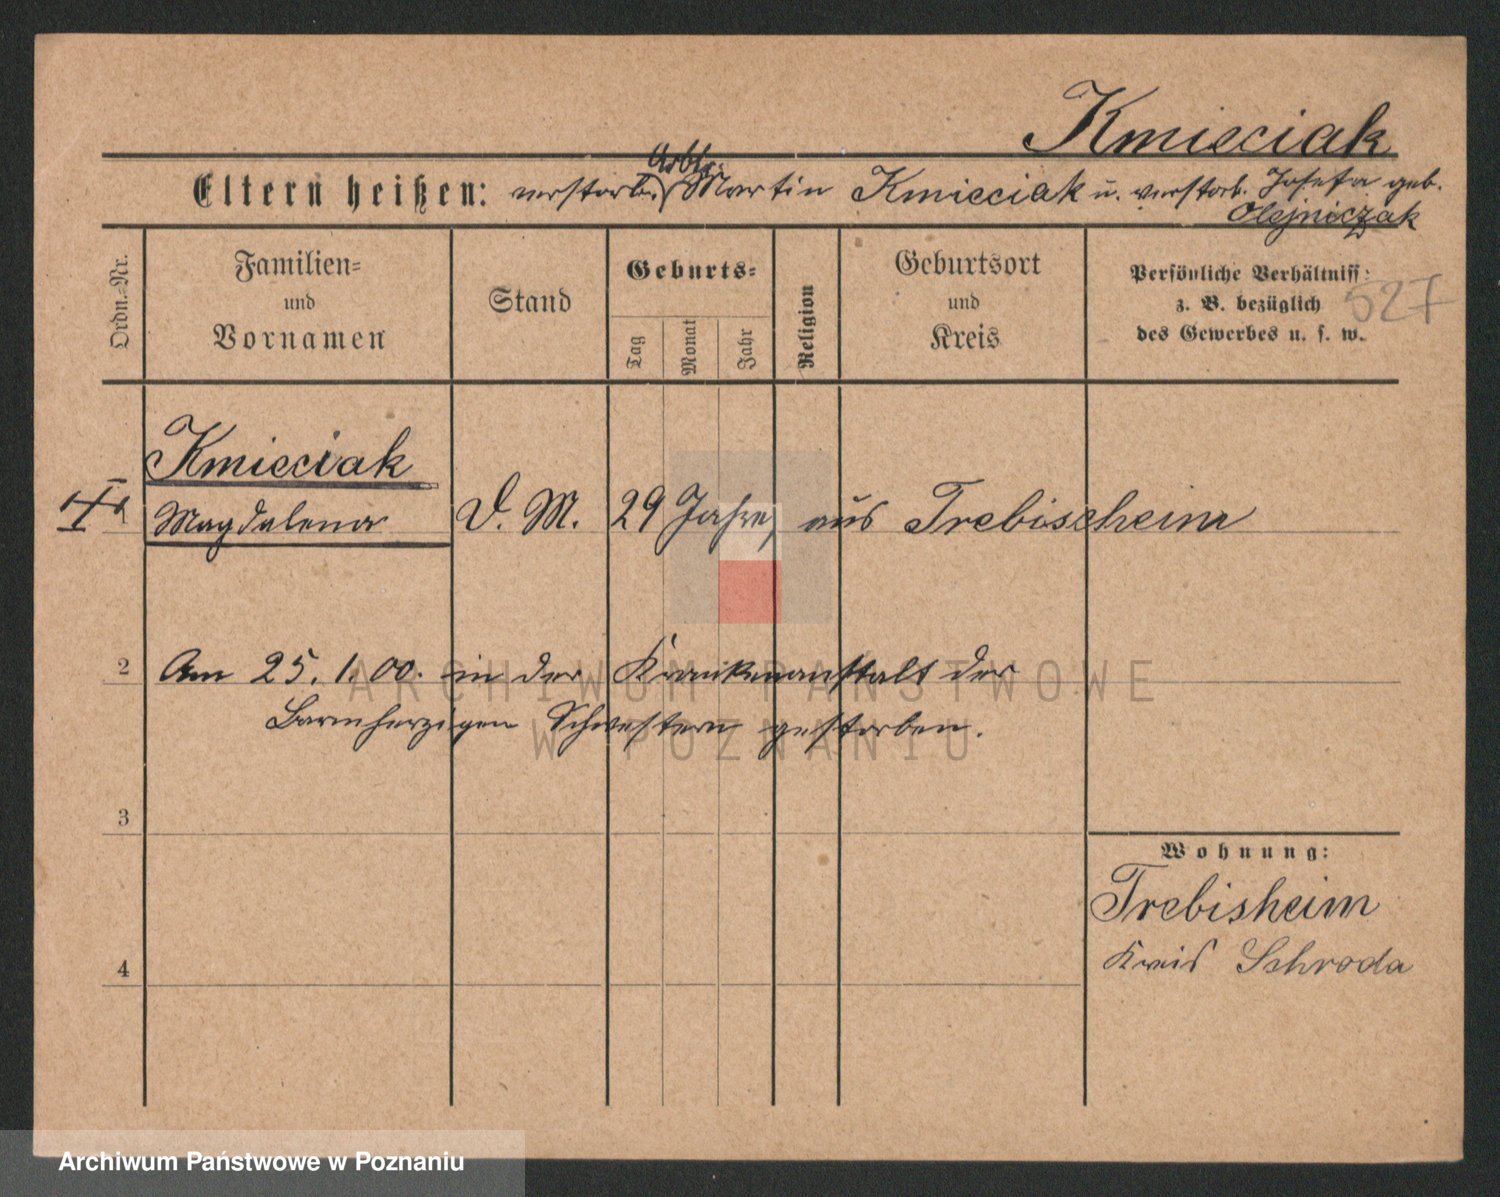 Kmieciak
Arbtr.
Eltern heißen: verstorb. Martin Kmieciak u. verstorb. Josefa geb.
Olejniczak
Ordn.-Nr.
Familien-
und
Vornamen
Stand
Geburts-
Tag
Monat
Jahr
Religion
Geburtsort
und
Kreis
Persönliche Verhältniss
z. B. bezüglich
des Gewerbes u. s. w.
527
Kmieciak
1 Magdalena D. M. 29 Jahre, aus Trebischeim
2 Am 25. 1. 00. in der Krankenanstalt der
Barmherzigen Schwestern gestorben.
3
Wohnung:
Trebisheim
Kreis Schroda
4
ARCHIWUM PAŃSTWOWE
W POZNANIU
Archiwum Państwowe w Poznaniu